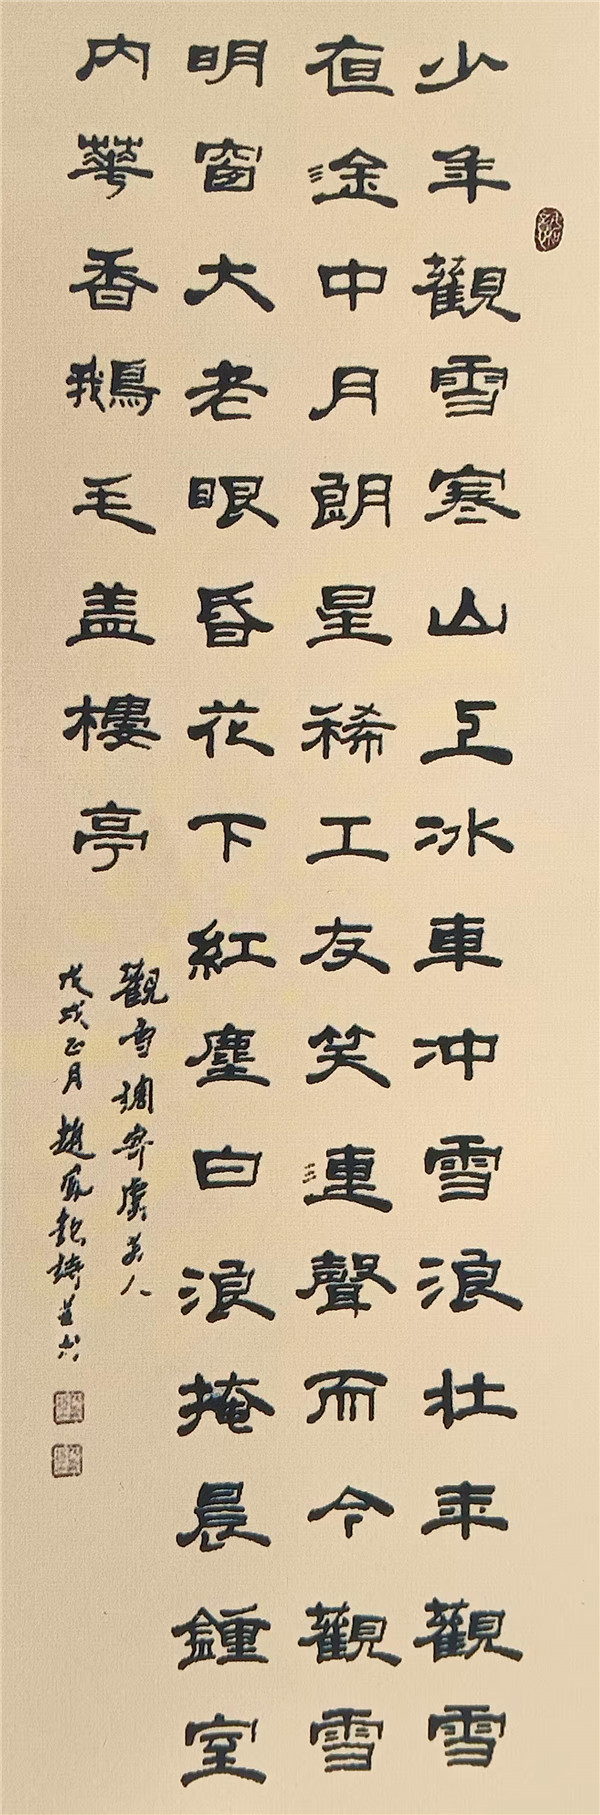 少年觀雪寒山上冰車冲雪浪壯年觀雪
夜途中月朗星稀工友笑連聲而今觀雪
明窗大老眼昏花下紅塵白浪掩晨鐘室
内華香鵝毛盖樓亭
觀雪調寄虞美人
戊戌正月趙鳳